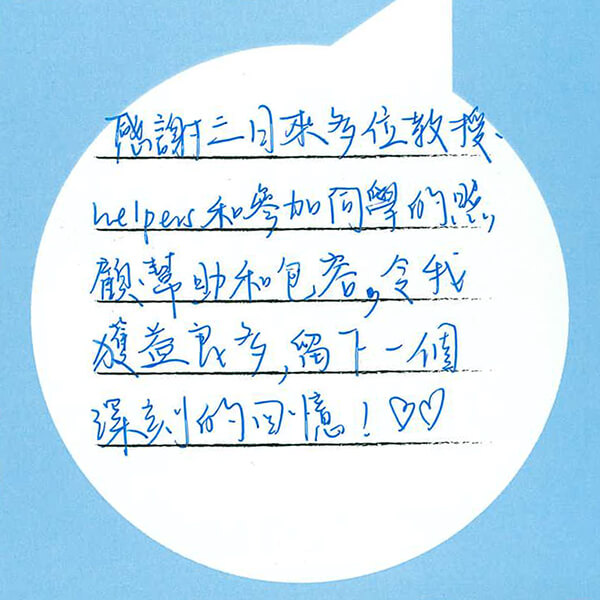 感謝三日來多位教授、
helpers和參加同學的照
顧、幫助和包容,令我
獲益良多,留下一個
深刻的回憶!♡♡